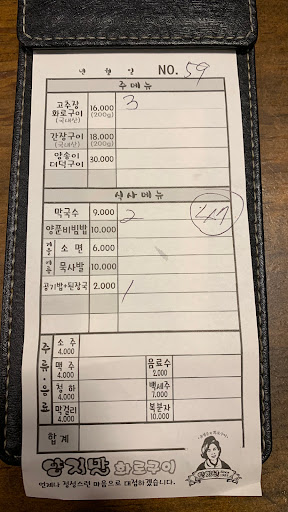 년 월 일 NO. 59
주 메 뉴
고추장 화로구이 (국내산) 16,000 (200g) 3
간장구이 (국내산) 18,000 (200g)
양송이 더덕구이 30,000
식 사 메 뉴
막국수 9,000 2
양푼비빔밥 10,000
소 면 6,000
묵사발 10,000
공기밥+된장국 2,000 1
주 류 · 음 료
소 주 4,000
맥 주 4,000 음료수 2,000
청 하 4,000 백세주 7,000
막걸리 4,000 복분자 10,000
합 계
화로구이
언제나 정성스런 마음으로 대접하겠습니다.